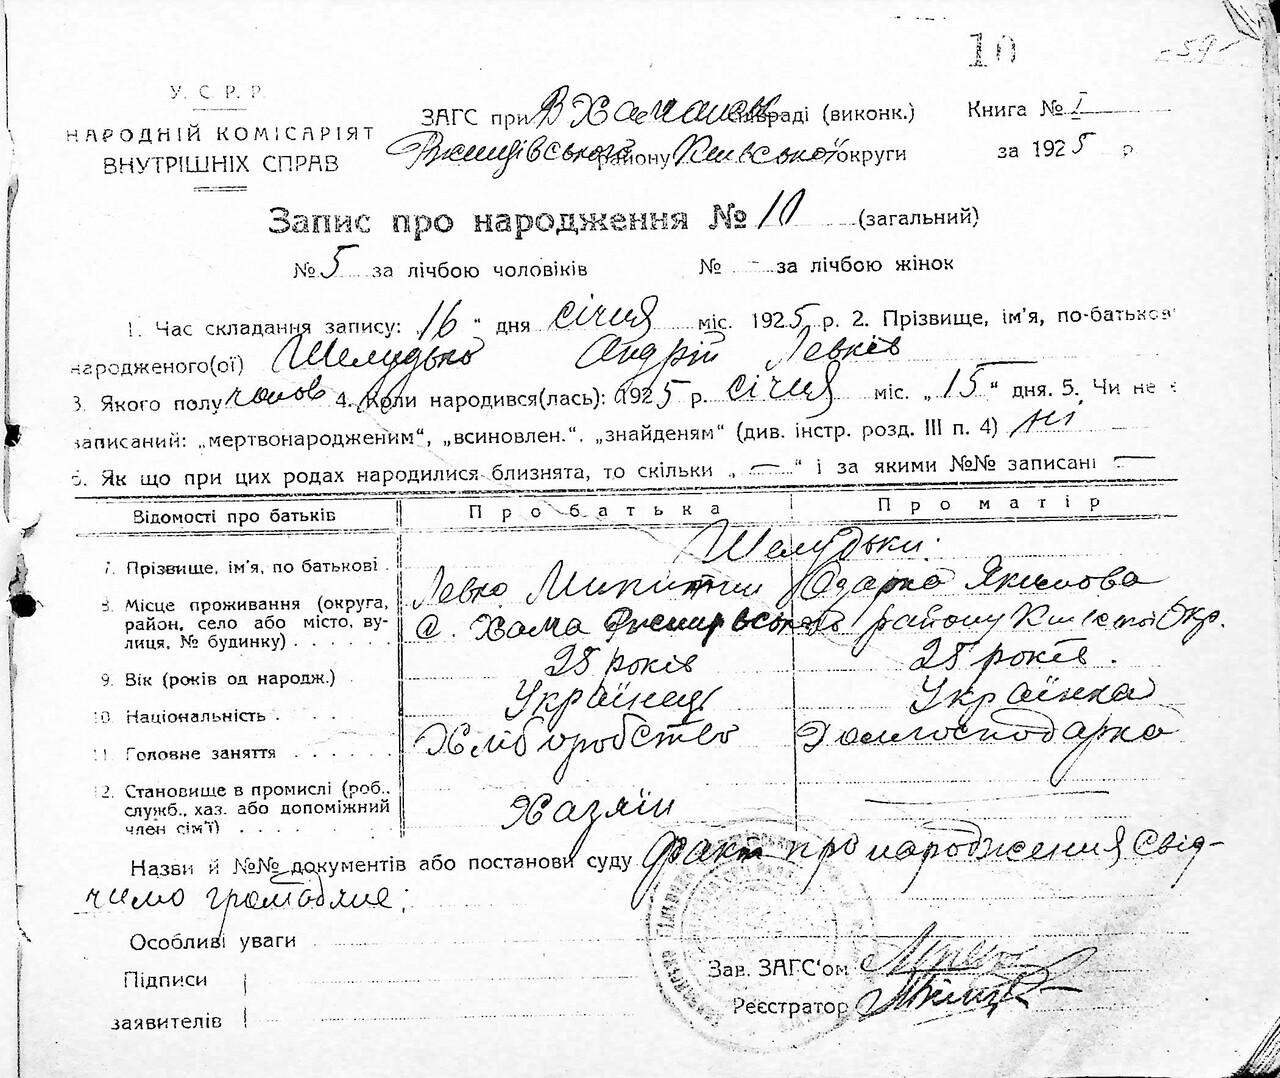 10 -59-
У. С. Р. Р.
НАРОДНІЙ КОМІСАРІЯТ
ВНУТРІШНІХ СПРАВ
ЗАГС при сільраді (виконк.)
Ржищівського району Київської округи
Книга № І
за 1925 р.
Запис про народження № 10 (загальний)
№ 5 за лічбою чоловіків № - за лічбою жінок
1. Час складання запису: „16“ дня січня міс. 1925 р. 2. Прізвище, ім'я, по-батькові
народженого(ої) Шелудько Андрій Левків
3. Якого полу чолов 4. Коли народився(лась): 1925 р. січня міс. „15“ дня. 5. Чи не є
записаний: „мертвонародженим“, „всиновлен.“, „знайденям“ (див. інстр. розд. III п. 4) ні
6. Як що при цих родах народилися близнята, то скільки „—“ і за якими №№ записані —
Відомості про батьків Про батька Про матір
Шелудьки:
7. Прізвище, ім'я, по батькові . Левко Микитин Одарка Якимова
8. Місце проживання (округа,
район, село або місто, ву-
лиця, № будинку) . . . . . . с. Ржищівського району Київської Окр.
9. Вік (років од народж.) . 25 років 25 років.
10. Національність . . . . Українець Українка
11. Головне заняття . . . . . Хліборобство Домгосподарка
12. Становище в промислі (роб.,
служб., хаз. або допоміжний
член сім'ї) . . . . . . . Хазяїн —
Назви й №№ документів або постанови суду факт про народження свід-
чимо громадяне:
Особливі уваги
Підписи
заявителів
Зав. ЗАГС'ом
Реєстратор